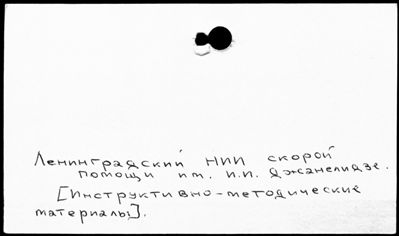 Ленинградский НИИ скорой
помощи им. И.И. Джанелидзе.
[Инструктивно-методические
материалы].